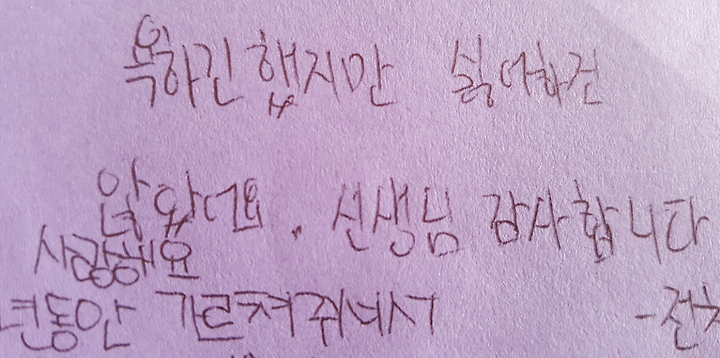 욕하긴 했지만 싫어하건
않았어요. 선생님 감사합니다
사랑해요
년동안 가르쳐주셔서 -전